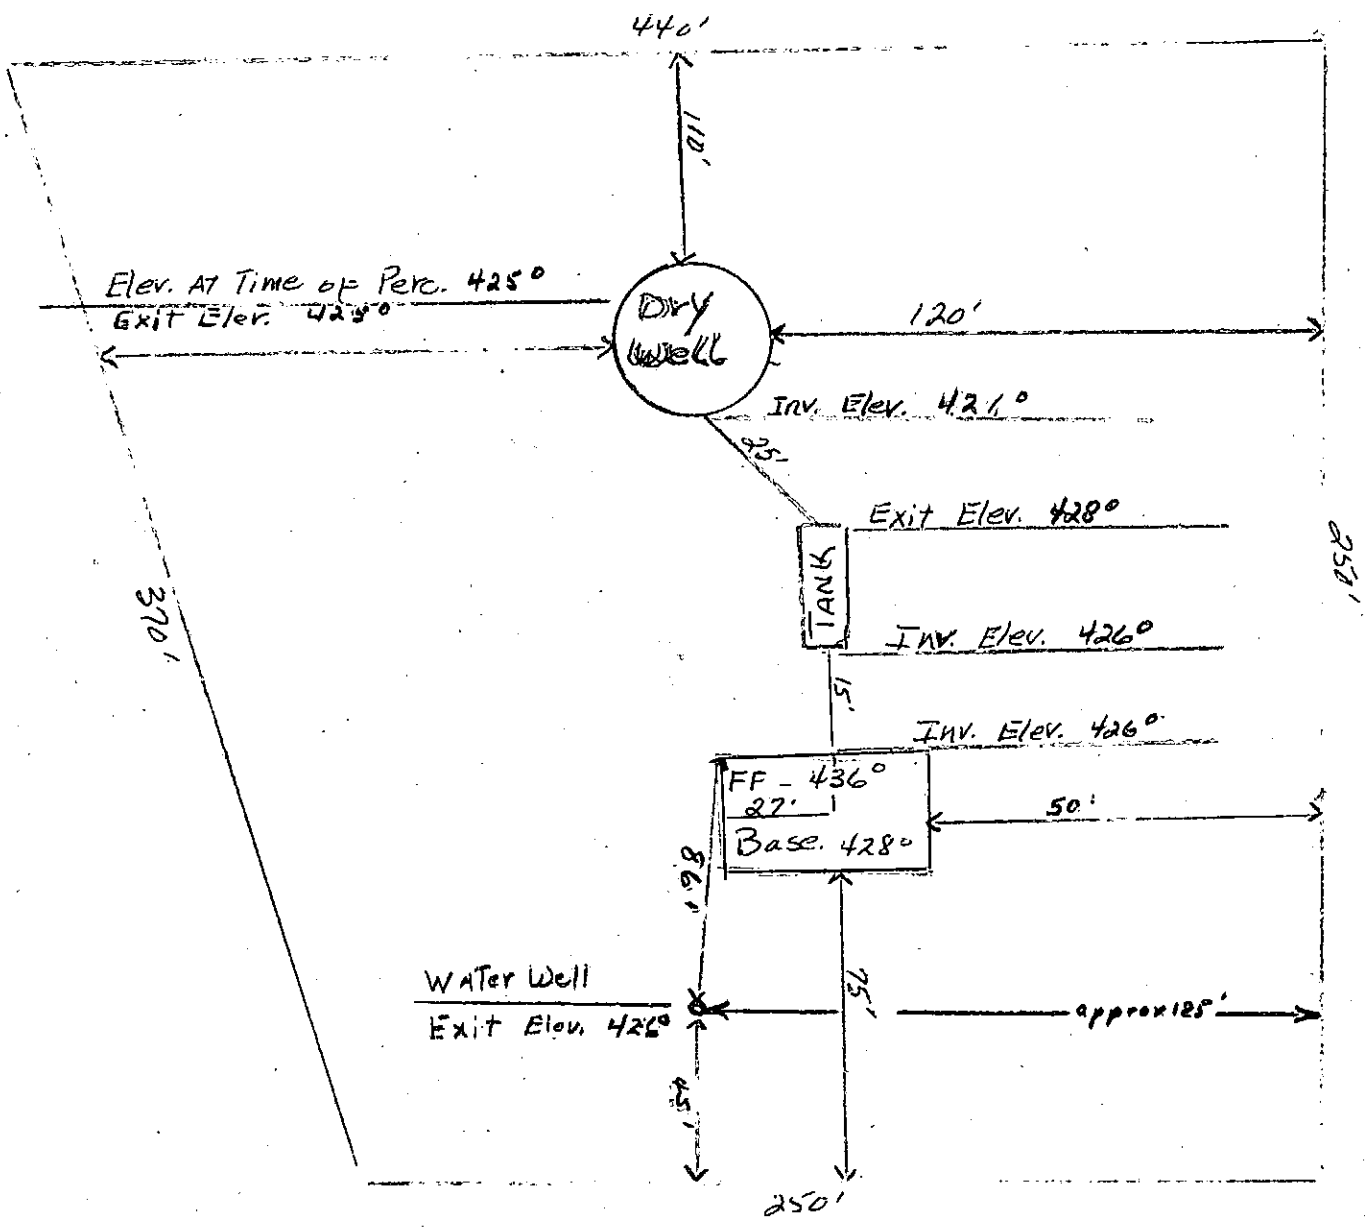 440'
110'
Elev. AT Time of Perc. 425°
Exit Elev. 425°
Dry
Well
120'
Inv. Elev. 421.°
25'
Exit Elev. 428°
250'
TANK
370'
Inv. Elev. 426°
15'
Inv. Elev. 426°
FF - 436°
27'
50'
Base. 428°
86'
WATer Well
Exit Elev. 426°
75'
approx 125'
45'
250'